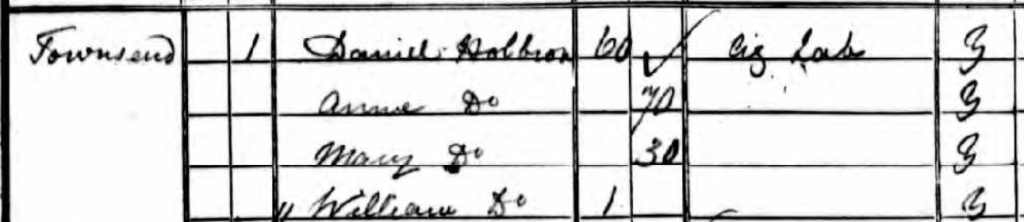 Townsend 1 Daniel Holbron 60 ✓ Ag Lab y
Anne Do 70 y
Mary Do 30 y
" William Do 1 y